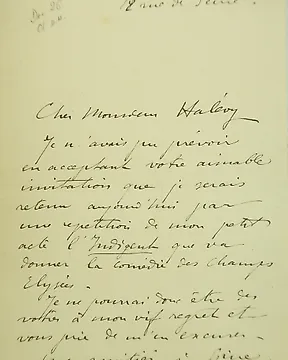 rue de Seine.
Cher Monsieur Halévy
Je n'avais pu prévoir
en acceptant votre aimable
invitation que je serais
retenu aujourd'hui par
une repetition de mon petit
acte l'Indigent que va
donner la Comédie des Champs
Elysées.
Je ne pourrai donc être des
vôtres à mon vif regret et
vous prie de m'en excuser.